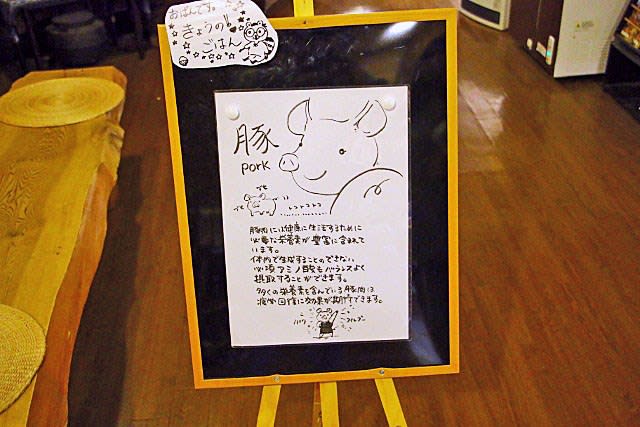 おばんです。
きょうの
ごはん
豚
pork
トコトコトコ
豚肉には健康に生活するために
必要な栄養素が豊富に含まれて
います。
体内で生成することのできない
必須アミノ酸もバランスよく
摂取することができます。
多くの栄養素を含んでいる豚肉は
疲労回復に効果が期待できます。